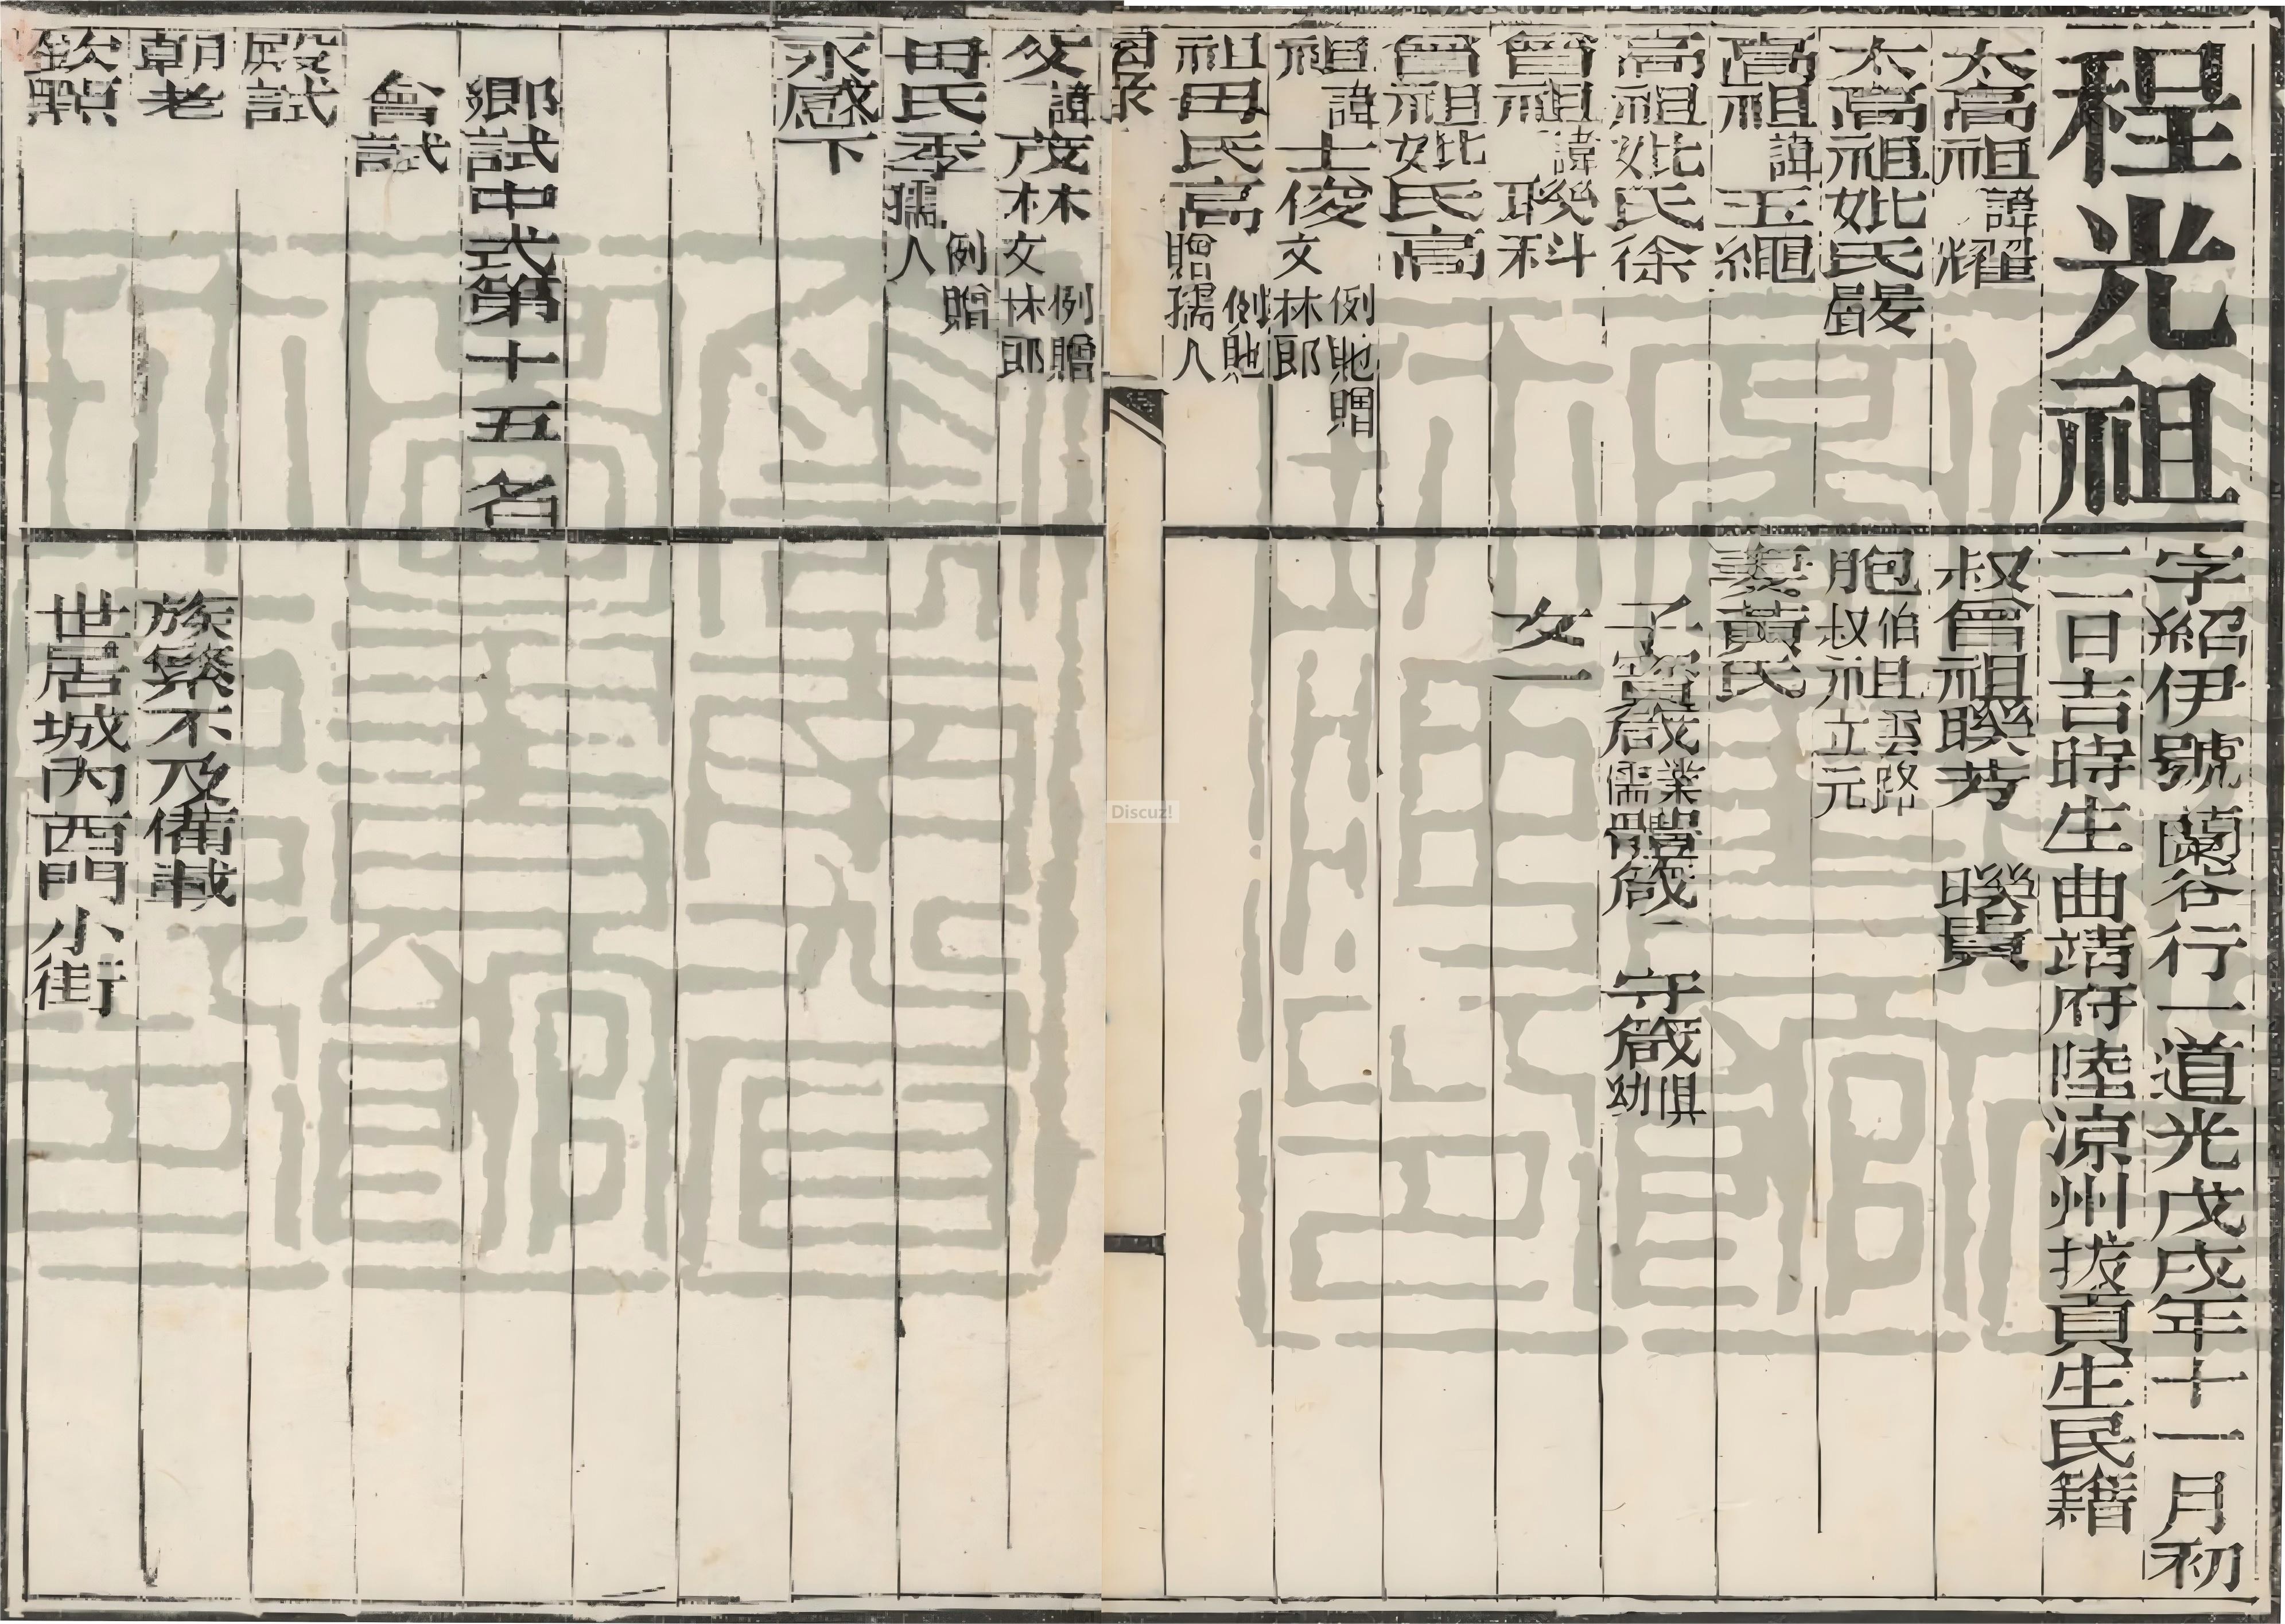 程光祖
字紹伊號蘭谷行一道光戊戌年十一月初
二日吉時生曲靖府陸涼州拔貢生民籍
太高祖諱耀
太高祖妣氏嚴
高祖諱玉繩
高祖妣氏徐
曾祖諱聯科
曾祖妣氏高
祖諱士俊例貤贈文林郎
祖母氏高例貤贈孺人
父諱茂林例贈文林郎
母氏季例贈孺人
永感下
叔曾祖聯芳 聯貴
胞伯叔祖雲路立元
妻黃氏
子寶箴業儒 體箴 守箴俱幼
女一
鄉試中式第十五名
會試
殿試
朝老
欽點
族繁不及備載
世居城內西門小街
Discuz!